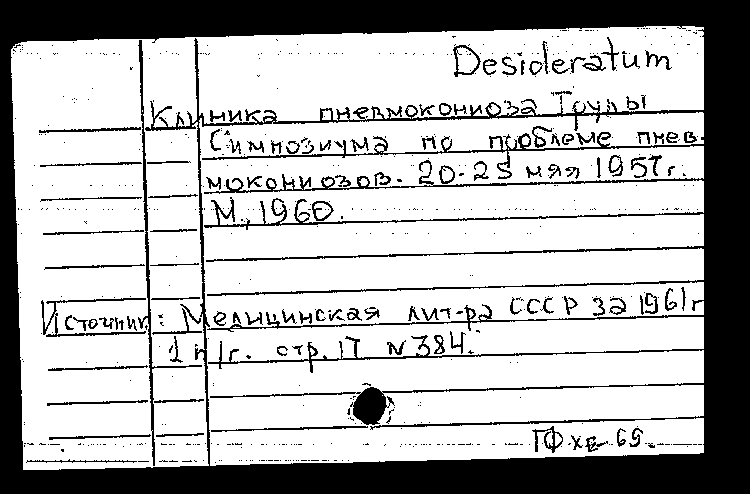 Desideratum
Клиника пневмокониоза Труды
Симпозиума по проблеме пнев-
мокониозов. 20-25 мая 1957г.
М., 1960.
Источник: Медицинская лит-ра СССР за 1961г
1 п/г. стр. 17 N 384.